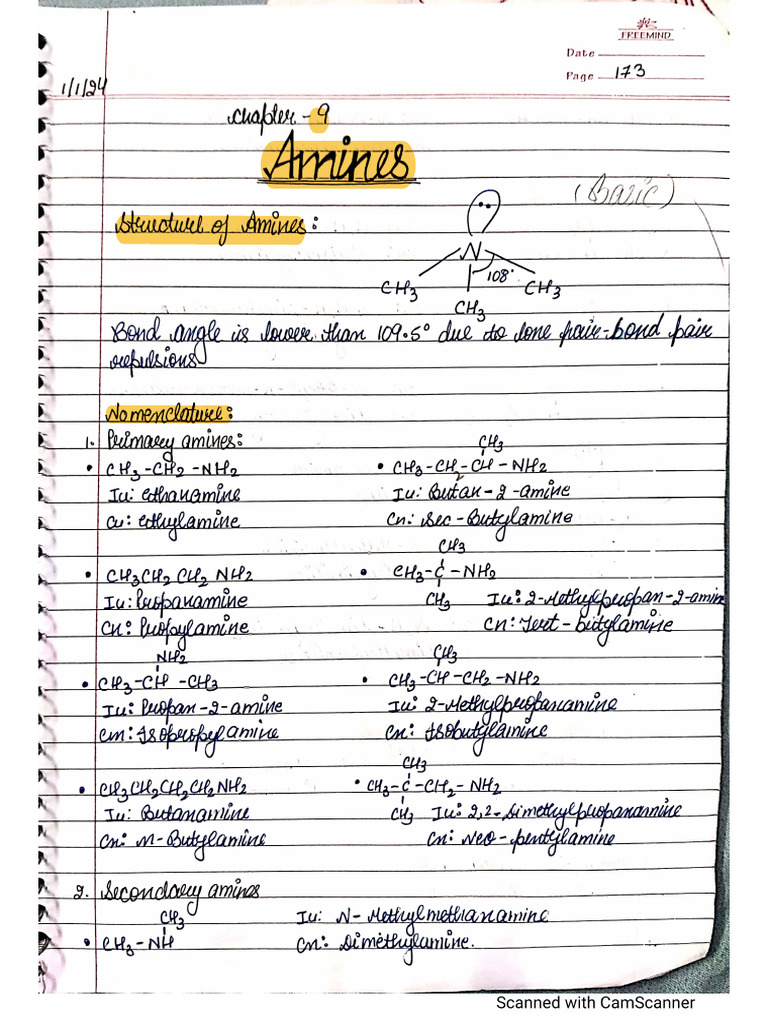 FREEMIND
Date
Page 173
1/1/24
Chapter - 9
Amines
(Basic)
Structure of Amines:
N
108°
CH3 CH3
CH3
Bond angle is lower than 109.5° due to lone pair-bond pair
repulsions
Nomenclature:
1. Primary amines:
• CH3-CH2-NH2
Iu: Ethanamine
Cn: Ethylamine
CH3
• CH3-CH2-CH-NH2
Iu: Butan-2-amine
Cn: Sec-Butylamine
• CH3CH2CH2NH2
Iu: Propanamine
Cn: Propylamine
CH3
• CH3-C-NH2
CH3 Iu: 2-Methylpropan-2-amine
Cn: Tert-butylamine
NH2
• CH3-CH-CH3
Iu: Propan-2-amine
Cn: Isopropylamine
CH3
• CH3-CH-CH2-NH2
Iu: 2-Methylpropanamine
Cn: Isobutylamine
• CH3CH2CH2CH2NH2
Iu: Butanamine
Cn: n-Butylamine
CH3
• CH3-C-CH2-NH2
CH3 Iu: 2,2-Dimethylpropanamine
Cn: Neo-pentylamine
2. Secondary amines
CH3
• CH3-NH
Iu: N-Methylmethanamine
Cn: Dimethylamine.
Scanned with CamScanner